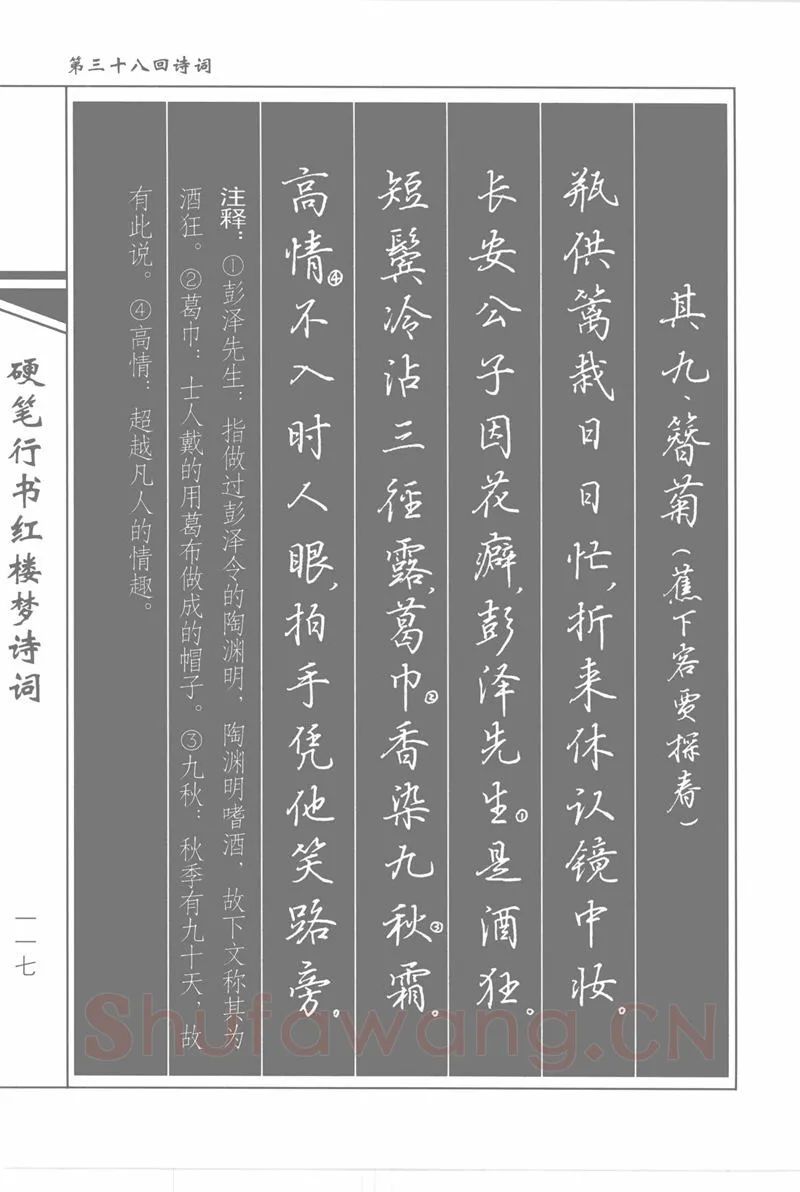 第三十八回诗词
其九、簪菊（蕉下客贾探春）
瓶供篱栽日日忙，折来休认镜中妆。
长安公子因花癖，彭泽先生①是酒狂。
短鬓冷沾三径露，葛巾②香染九秋③霜。
高情④不入时人眼，拍手凭他笑路旁。
注释：①彭泽先生：指做过彭泽令的陶渊明，陶渊明嗜酒，故下文称其为
酒狂。②葛巾：士人戴的用葛布做成的帽子。③九秋：秋季有九十天，故
有此说。④高情：超越凡人的情趣。
硬笔行书红楼梦诗词
一一七
Shufawang.CN